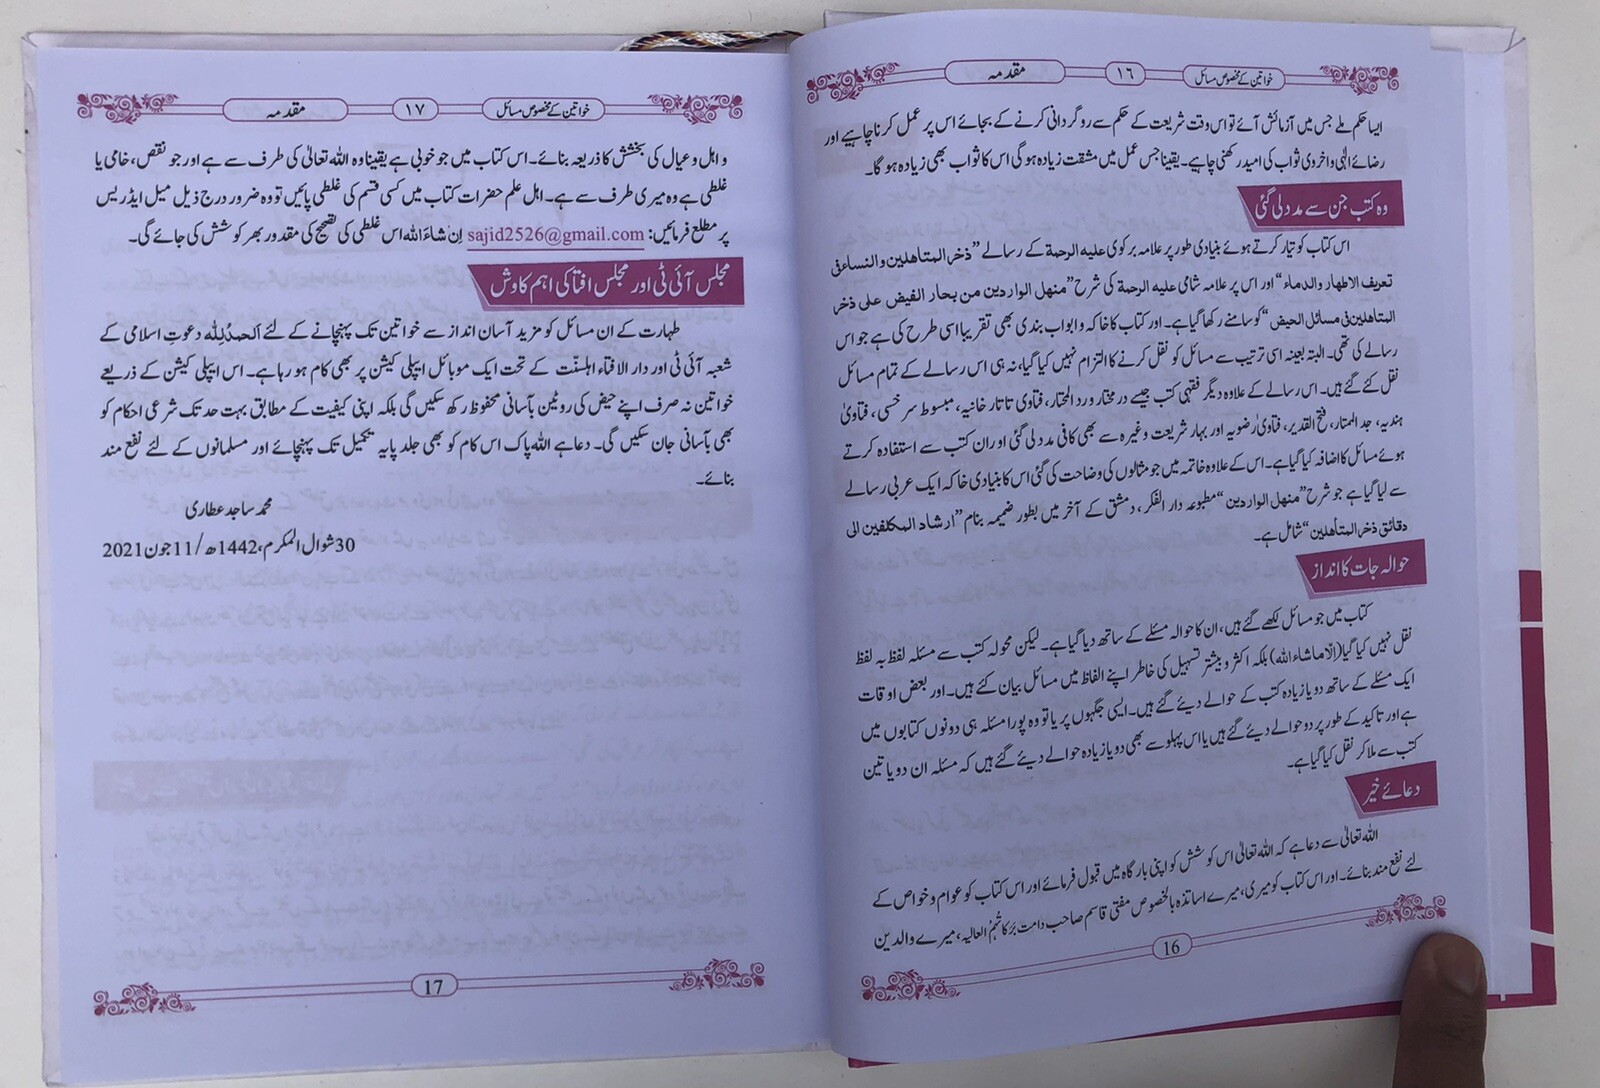 خواتین کے مخصوص مسائل ١٦ مقدمہ
ایسا حکم ملے جس میں آزمائش آئے تو اس وقت شریعت کے حکم سے روگردانی کرنے کے بجائے اس پر عمل کرنا چاہیے اور
رضائے الٰہی و اخروی ثواب کی امید رکھنی چاہیے۔ یقینا جس عمل میں مشقت زیادہ ہوگی اس کا ثواب بھی زیادہ ہوگا۔
وہ کتب جن سے مدد لی گئی
اس کتاب کو تیار کرتے ہوئے بنیادی طور پر علامہ برکوی علیہ الرحمۃ کے رسالے ”ذخر المتاھلین والنساء فی
تعریف الاطھار والدماء“ اور اس پر علامہ شامی علیہ الرحمۃ کی شرح ”منھل الواردین من بحار الفیض علی ذخر
المتاھلین فی مسائل الحیض“ کو سامنے رکھا گیا ہے۔ اور کتاب کا خاکہ و ابواب بندی بھی تقریبا اسی طرح کی ہے جو اس
رسالے کی تھی۔ البتہ بعینہ اسی ترتیب سے مسائل کو نقل کرنے کا التزام نہیں کیا گیا، نہ ہی اس رسالے کے تمام مسائل
نقل کئے گئے ہیں۔ اس رسالے کے علاوہ دیگر فقہی کتب جیسے در مختار و رد المحتار، فتاوی تاتار خانیہ، مبسوط سرخسی، فتاویٰ
ہندیہ، جد الممتار، فتح القدیر، فتاویٰ رضویہ اور بہار شریعت وغیرہ سے بھی کافی مدد لی گئی اور ان کتب سے استفادہ کرتے
ہوئے مسائل کا اضافہ کیا گیا ہے۔ اس کے علاوہ خاتمہ میں جو مثالوں کی وضاحت کی گئی اس کا بنیادی خاکہ ایک عربی رسالے
سے لیا گیا ہے جو شرح ”منھل الواردین“ مطبوعہ دار الفکر، دمشق کے آخر میں بطور ضمیمہ بنام ”ارشاد المکلفین الی
دقائق ذخر المتاھلین“ شامل ہے۔
حوالہ جات کا انداز
کتاب میں جو مسائل لکھے گئے ہیں، ان کا حوالہ مسئلے کے ساتھ دیا گیا ہے۔ لیکن محولہ کتب سے مسئلہ لفظ بہ لفظ
نقل نہیں کیا گیا (الّا ماشاء اللہ) بلکہ اکثر و بیشتر تسہیل کی خاطر اپنے الفاظ میں مسائل بیان کئے ہیں۔ اور بعض اوقات
ایک مسئلے کے ساتھ دو یا زیادہ کتب کے حوالے دیئے گئے ہیں۔ ایسی جگہوں پر یا تو وہ پورا مسئلہ ہی دونوں کتابوں میں
ہے اور تاکید کے طور پر دو حوالے دیئے گئے ہیں یا اس پہلو سے بھی دو یا زیادہ حوالے دیئے گئے ہیں کہ مسئلہ ان دو یا تین
کتب سے ملا کر نقل کیا گیا ہے۔
دعائے خیر
اللہ تعالیٰ سے دعا ہے کہ اللہ تعالیٰ اس کوشش کو اپنی بارگاہ میں قبول فرمائے اور اس کتاب کو عوام و خواص کے
لئے نفع مند بنائے۔ اور اس کتاب کو میری، میرے اساتذہ بالخصوص مفتی قاسم صاحب دامت برکاتہم العالیہ، میرے والدین
16
خواتین کے مخصوص مسائل ١٧ مقدمہ
و اہل و عیال کی بخشش کا ذریعہ بنائے۔ اس کتاب میں جو خوبی ہے یقینا وہ اللہ تعالیٰ کی طرف سے ہے اور جو نقص، خامی یا
غلطی ہے وہ میری طرف سے ہے۔ اہل علم حضرات کتاب میں کسی قسم کی غلطی پائیں تو وہ ضرور درج ذیل میل ایڈریس
پر مطلع فرمائیں: sajid2526@gmail.com اِن شاءَ اللہ اس غلطی کی تصحیح کی مقدور بھر کوشش کی جائے گی۔
مجلس آئی ٹی اور مجلس افتا کی اہم کاوش
طہارت کے ان مسائل کو مزید آسان انداز سے خواتین تک پہنچانے کے لئے اَلحمدُلِلّٰہ دعوتِ اسلامی کے
شعبہ آئی ٹی اور دار الافتاء اہلسنّت کے تحت ایک موبائل ایپلی کیشن پر بھی کام ہو رہا ہے۔ اس ایپلی کیشن کے ذریعے
خواتین نہ صرف اپنے حیض کی روٹین بآسانی محفوظ رکھ سکیں گی بلکہ اپنی کیفیت کے مطابق بہت حد تک شرعی احکام کو
بھی بآسانی جان سکیں گی۔ دعا ہے اللہ پاک اس کام کو بھی جلد پایہ تکمیل تک پہنچائے اور مسلمانوں کے لئے نفع مند
بنائے۔
محمد ساجد عطاری
30 شوال المکرم، 1442ھ/11 جون 2021
17